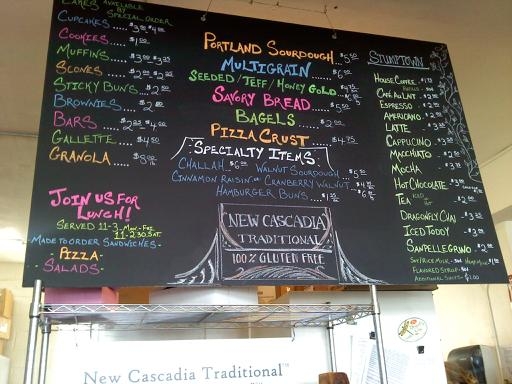 CAKES AVAILABLE BY SPECIAL ORDER
CUPCAKES..... $3.00
COOKIES..... $1.00
MUFFINS..... $3.00
SCONES..... $2.00
STICKY BUNS.. $2.00
BROWNIES..... $2.00
BARS.....
GALLETTE.... $4.50
GRANOLA....
JOIN US FOR
LUNCH!
SERVED 11-3 MON-FRI
11-2:30 SAT.
MADE TO ORDER SANDWICHES-
-PIZZA-
SALADS-
PORTLAND SOURDOUGH..... $5.50
MULTIGRAIN..... $6.00
SEEDED/TEFF/HONEY GOLD
SAVORY BREAD
BAGELS..... $2.00
PIZZA CRUST..... $4.75
SPECIALTY ITEMS
CHALLAH WALNUT SOURDOUGH
CINNAMON RAISIN CRANBERRY WALNUT
HAMBURGER BUNS
NEW CASCADIA
TRADITIONAL
100% GLUTEN FREE
STUMPTOWN
HOUSE COFFEE
CAFÉ AU LAIT
ESPRESSO
AMERICANO
LATTE
CAPPUCCINO
MACCHIATO
MOCHA
HOT CHOCOLATE
TEA
DRAGONFLY CHAI
ICED TODDY
SANPELLEGRINO
SOY/RICE MILK HEMP MILK
FLAVORED SYRUP
ADDITIONAL SHOTS $1.00
New Cascadia Traditional™